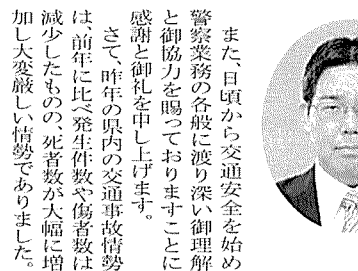 また、日頃から交通安全を始め
警察業務の各般に渡り深い御理解
と御協力を賜っておりますことに
感謝と御礼を申し上げます。
さて、昨年の県内の交通事故情勢
は、前年に比べ発生件数や傷者数は
減少したものの、死者数が大幅に増
加し大変厳しい情勢でありました。